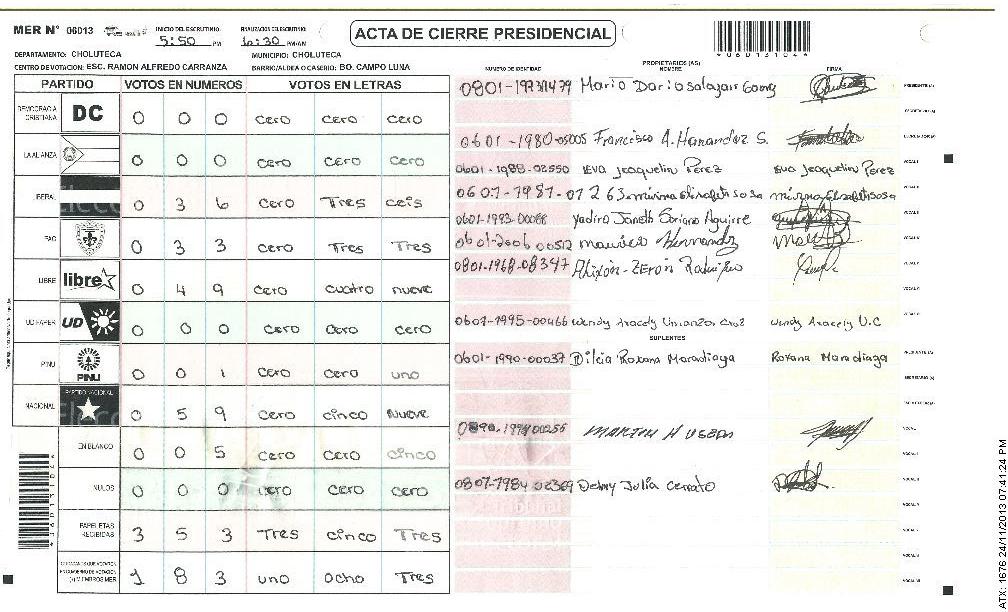 MER N° 06013 INICIO DEL ESCRUTINIO 5:50 PM FINALIZACION ESCRUTINIO 6:30 PM/AM
ACTA DE CIERRE PRESIDENCIAL
*060131044
DEPARTAMENTO: CHOLUTECA MUNICIPIO: CHOLUTECA
CENTRO DE VOTACION: ESC. RAMON ALFREDO CARRANZA BARRIO/ALDEA O CASERIO: BO. CAMPO LUNA
PARTIDO VOTOS EN NUMEROS VOTOS EN LETRAS
DEMOCRACIA CRISTIANA DC 0 0 0 cero cero cero
LA ALIANZA 0 0 0 cero cero cero
LIBERAL 0 3 6 cero Tres ceis
FAC 0 3 3 cero Tres Tres
LIBRE libre 0 4 9 cero cuatro nueve
UD FAPER UD 0 0 0 cero cero cero
PINU PINU 0 0 1 cero cero uno
NACIONAL PARTIDO NACIONAL 0 5 9 cero cinco nueve
EN BLANCO 0 0 5 cero cero cinco
NULOS 0 0 0 cero cero cero
PAPELETAS RECIBIDAS 3 5 3 Tres cinco Tres
CIUDADANOS QUE VOTARON EN CUADERNO DE VOTACION (+) MIEMBROS MER 1 8 3 uno ocho Tres
PROPIETARIOS (AS)
NUMERO DE IDENTIDAD NOMBRE FIRMA
Mario Dario Salazar PRESIDENTE (A)
SECRETARIO (A)
0601-1980-05005 Francisco A. Hernandez S. ESCRUTADOR (A)
0601-1988-02550 Eva Joaquelin Perez Eva Joaquelin Perez VOCAL I
0601-1993-00088 Yadira Janeth Soriano Aguirre
0601-2006 00512 mauricio Hernandez
0801-1968-08347
0601-1995-00466 Wendy Aracely Cruz Wendy Aracely U.C
SUPLENTES
0601-1990-00037 Dilcia Roxana Maradiaga Roxana Maradiaga PRESIDENTE (A)
SECRETARIO (A)
MARTIN
0801-1984 02369 Delmy Julia Cerrato
ATX: 1676 24/11/2013 07:41:24 PM